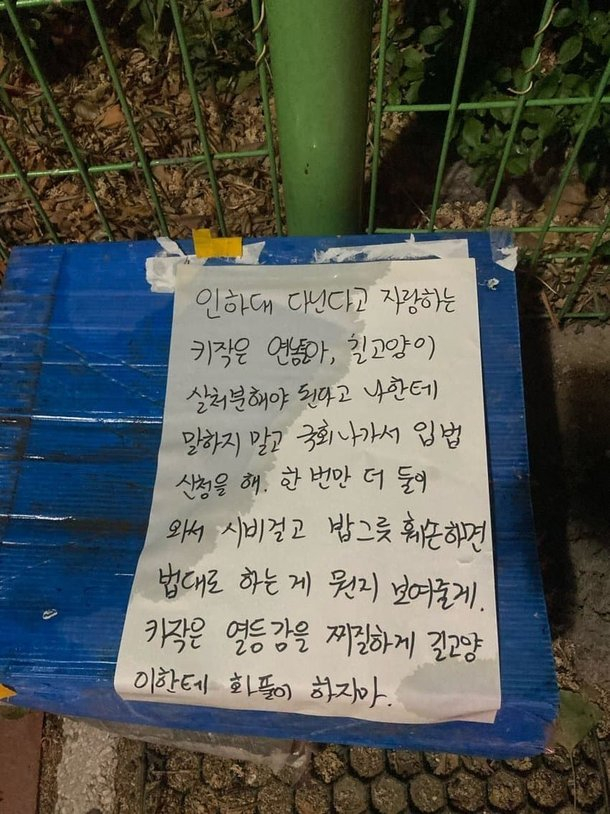 인하대 다닌다고 자랑하는
키작은 연놈아, 길고양이
살처분해야 된다고 나한테
말하지 말고 국회 나가서 입법
신청을 해. 한 번만 더 들어
와서 시비걸고 밥그릇 훼손하면
법대로 하는 게 뭔지 보여줄게.
키작은 열등감을 찌질하게 길고양
이한테 화풀이 하지마.